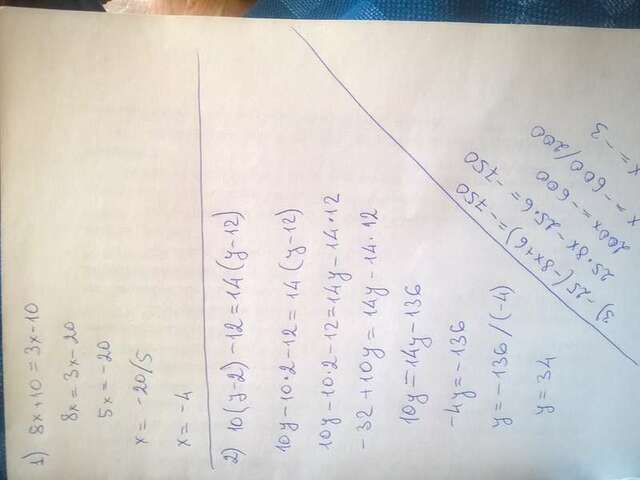 1) 8x+10=3x-10
8x=3x-20
5x=-20
x=-20/5
x=-4
2) 10(y-2)-12=14(y-12)
10y-10·2-12=14(y-12)
10y-10·2-12=14y-14·12
-32+10y=14y-14·12
10y=14y-136
-4y=-136
y=-136/(-4)
y=34
3) -25(-8x+6)=-750
25·8x-25·6=-750
200x=-600
x=-600/200
x=-3